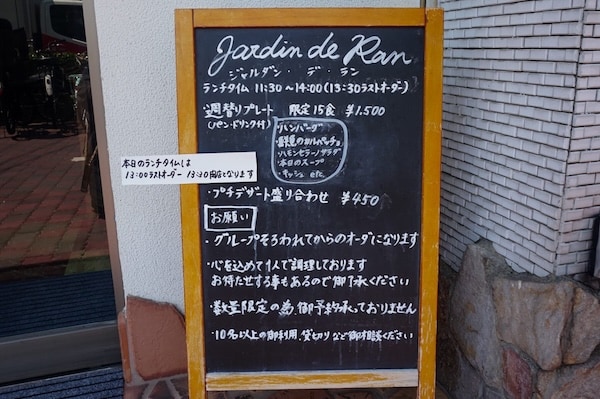 Jardin de Ran
ジャルダン・デ・ラン
ランチタイム 11:30〜14:00(13:30ラストオーダー)
週替りプレート 限定15食 ¥1.500
(パン・ドリンク付)
・ハンバーグ
・鮮魚のカルパッチョ
・ハモンセラーノサラダ
・本日のスープ
・キッシュ etc.
本日のランチタイムは
13:00ラストオーダー 13:30閉店となります
・プチデザート盛り合わせ ¥450
お願い
・グループそろわれてからのオーダになります
・心を込めて1人で調理しております
お待たせする事もあるので御了承ください
・数量限定の為、御予約承っておりません
・10名以上の御利用、貸切りなど御相談ください